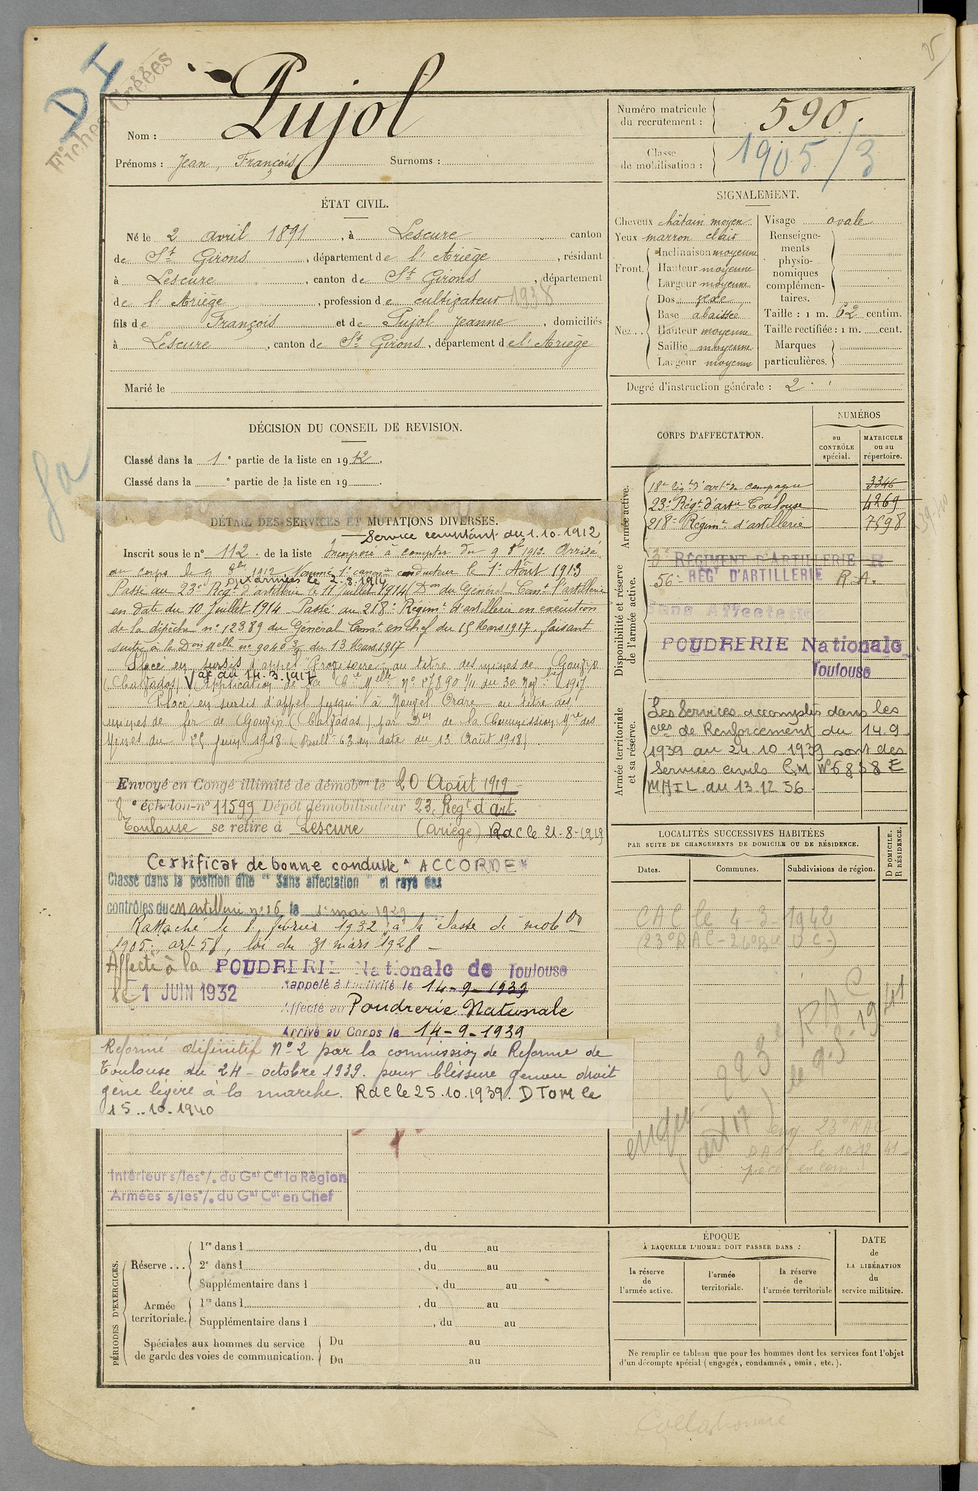 DI
Fiches Créées
Nom : Pujol
Prénoms : Jean, François Surnoms :
Numéro matricule
du recrutement : 590.
Classe
de mobilisation : 1905/3
ÉTAT CIVIL.
Né le 2 avril 1891, à Lescure canton
de St Girons, département de l'Ariège, résidant
à Lescure, canton de St Girons, département
de l'Ariège, profession de cultivateur 1938
fils de François et de Pujol Jeanne, domiciliés
à Lescure, canton de St Girons, département de l'Ariège
Marié le
SIGNALEMENT.
Cheveux châtain moyen
Yeux marron clair
Front. Inclinaison moyenne
Hauteur moyenne
Largeur moyenne
Nez.. Dos
Base abaissée
Hauteur moyenne
Saillie moyenne
Largeur moyenne
Visage ovale
Renseigne-
ments
physio-
nomiques
complémen-
taires.
Taille : 1 m. 62 centim.
Taille rectifiée : 1 m. cent.
Marques
particulières.
Degré d'instruction générale : 2
DÉCISION DU CONSEIL DE REVISION.
Classé dans la 1e partie de la liste en 1912.
Classé dans la e partie de la liste en 19 .
DÉTAIL DES SERVICES ET MUTATIONS DIVERSES.
Service comptant du 1.10.1912
Inscrit sous le n° 112 de la liste Incorporé à compter du 9 8bre 1912. Arrivé
au corps le 9 8bre 1912. Nommé 1er canonnier conducteur le 1er Août 1913
aux armées le 2.8.1914
Passé au 23e Régt d'artillerie le 11 juillet 1914 (Don du Général Comt l'artillerie
en date du 10 juillet 1914. Passé au 218e Régimt d'artillerie en exécution
de la dépêche n° 12389 du Général Comt en Chef du 15 Mars 1917, faisant
suite à la Don Melle n° 9040 3/3 du 13 Mars 1917
Placé en sursis d'appel au titre des mines de Gouzip
(Calvados) Vac du 14.3.1917 Application de la Cre Melle n° 17890 1/11 du 30 Nov 1917
Placé en sursis d'appel jusqu'à Nouvel Ordre au titre des
mines de fer de Gouzip (Calvados) par Don de la Commission Mre des
Mines du 25 juin 1918 (Bull. 63 en date du 13 Août 1918)
Envoyé en Congé illimité de démobon le 20 Août 1919
8e échelon n° 11599 Dépôt démobilisateur 23e Régt d'art.
Toulouse se retire à Lescure (Ariège) Rdc le 21-8-1919
Certificat de bonne conduite "ACCORDÉ"
Classé dans la position dite "Sans affectation" et rayé des
contrôles du CM artillerie n° 16 le 1er mai 1929
Rattaché le 8 février 1932 à la classe de mobon
1905, art 58, loi du 31 mars 1928
Affecté à la POUDRERIE Nationale de Toulouse
LE 1 JUIN 1932
Rappelé à l'activité le 14-9-1939
Affecté au Poudrerie Nationale
Arrivé au Corps le 14-9-1939
Réformé définitif N° 2 par la commission de Réforme de
Toulouse du 24 octobre 1939. pour blessure genou droit
gêne légère à la marche. Rdc le 25.10.1939. DTOM le
15..10.1940
Intérieur s/les o/o du Gal Cdt la Région
Armées s/les o/o du Gal Cdt en Chef
CORPS D'AFFECTATION.
NUMÉROS
au
CONTRÔLE
spécial.
MATRICULE
ou au
répertoire.
Armée active.
18e Régt d'artie de campagne 3346
23e Régt d'artie Toulouse 4269
218e Régimt d'artillerie 7598
Disponibilité et réserve
de l'armée active.
RÉGIMENT D'ARTILLERIE
56e RÉGt D'ARTILLERIE R.A.
Sans Affectation
POUDRERIE Nationale
Toulouse
Armée territoriale
et sa réserve.
Les Services accomplis dans les
cies de Renforcement du 14.9
1939 au 24.10.1939 sont des
Services civils C.M N° 6838 E
MAIL. du 13.12.56.
LOCALITÉS SUCCESSIVES HABITÉES
PAR SUITE DE CHANGEMENTS DE DOMICILE OU DE RÉSIDENCE.
D DOMICILE.
R RÉSIDENCE.
Dates. Communes. Subdivisions de région.
CAC le 4-3-1942
Collationné
PÉRIODES D'EXERCICES.
Réserve... 1re dans l , du au
2e dans l , du au
Supplémentaire dans l , du au
Armée
territoriale. 1re dans l , du au
Supplémentaire dans l , du au
Spéciales aux hommes du service
de garde des voies de communication. Du au
Du au
ÉPOQUE
À LAQUELLE L'HOMME DOIT PASSER DANS :
la réserve
de
l'armée active.
l'armée
territoriale.
la réserve
de
l'armée territoriale
DATE
de
LA LIBÉRATION
du
service militaire.
Ne remplir ce tableau que pour les hommes dont les services font l'objet
d'un décompte spécial (engagés, condamnés, omis, etc.).